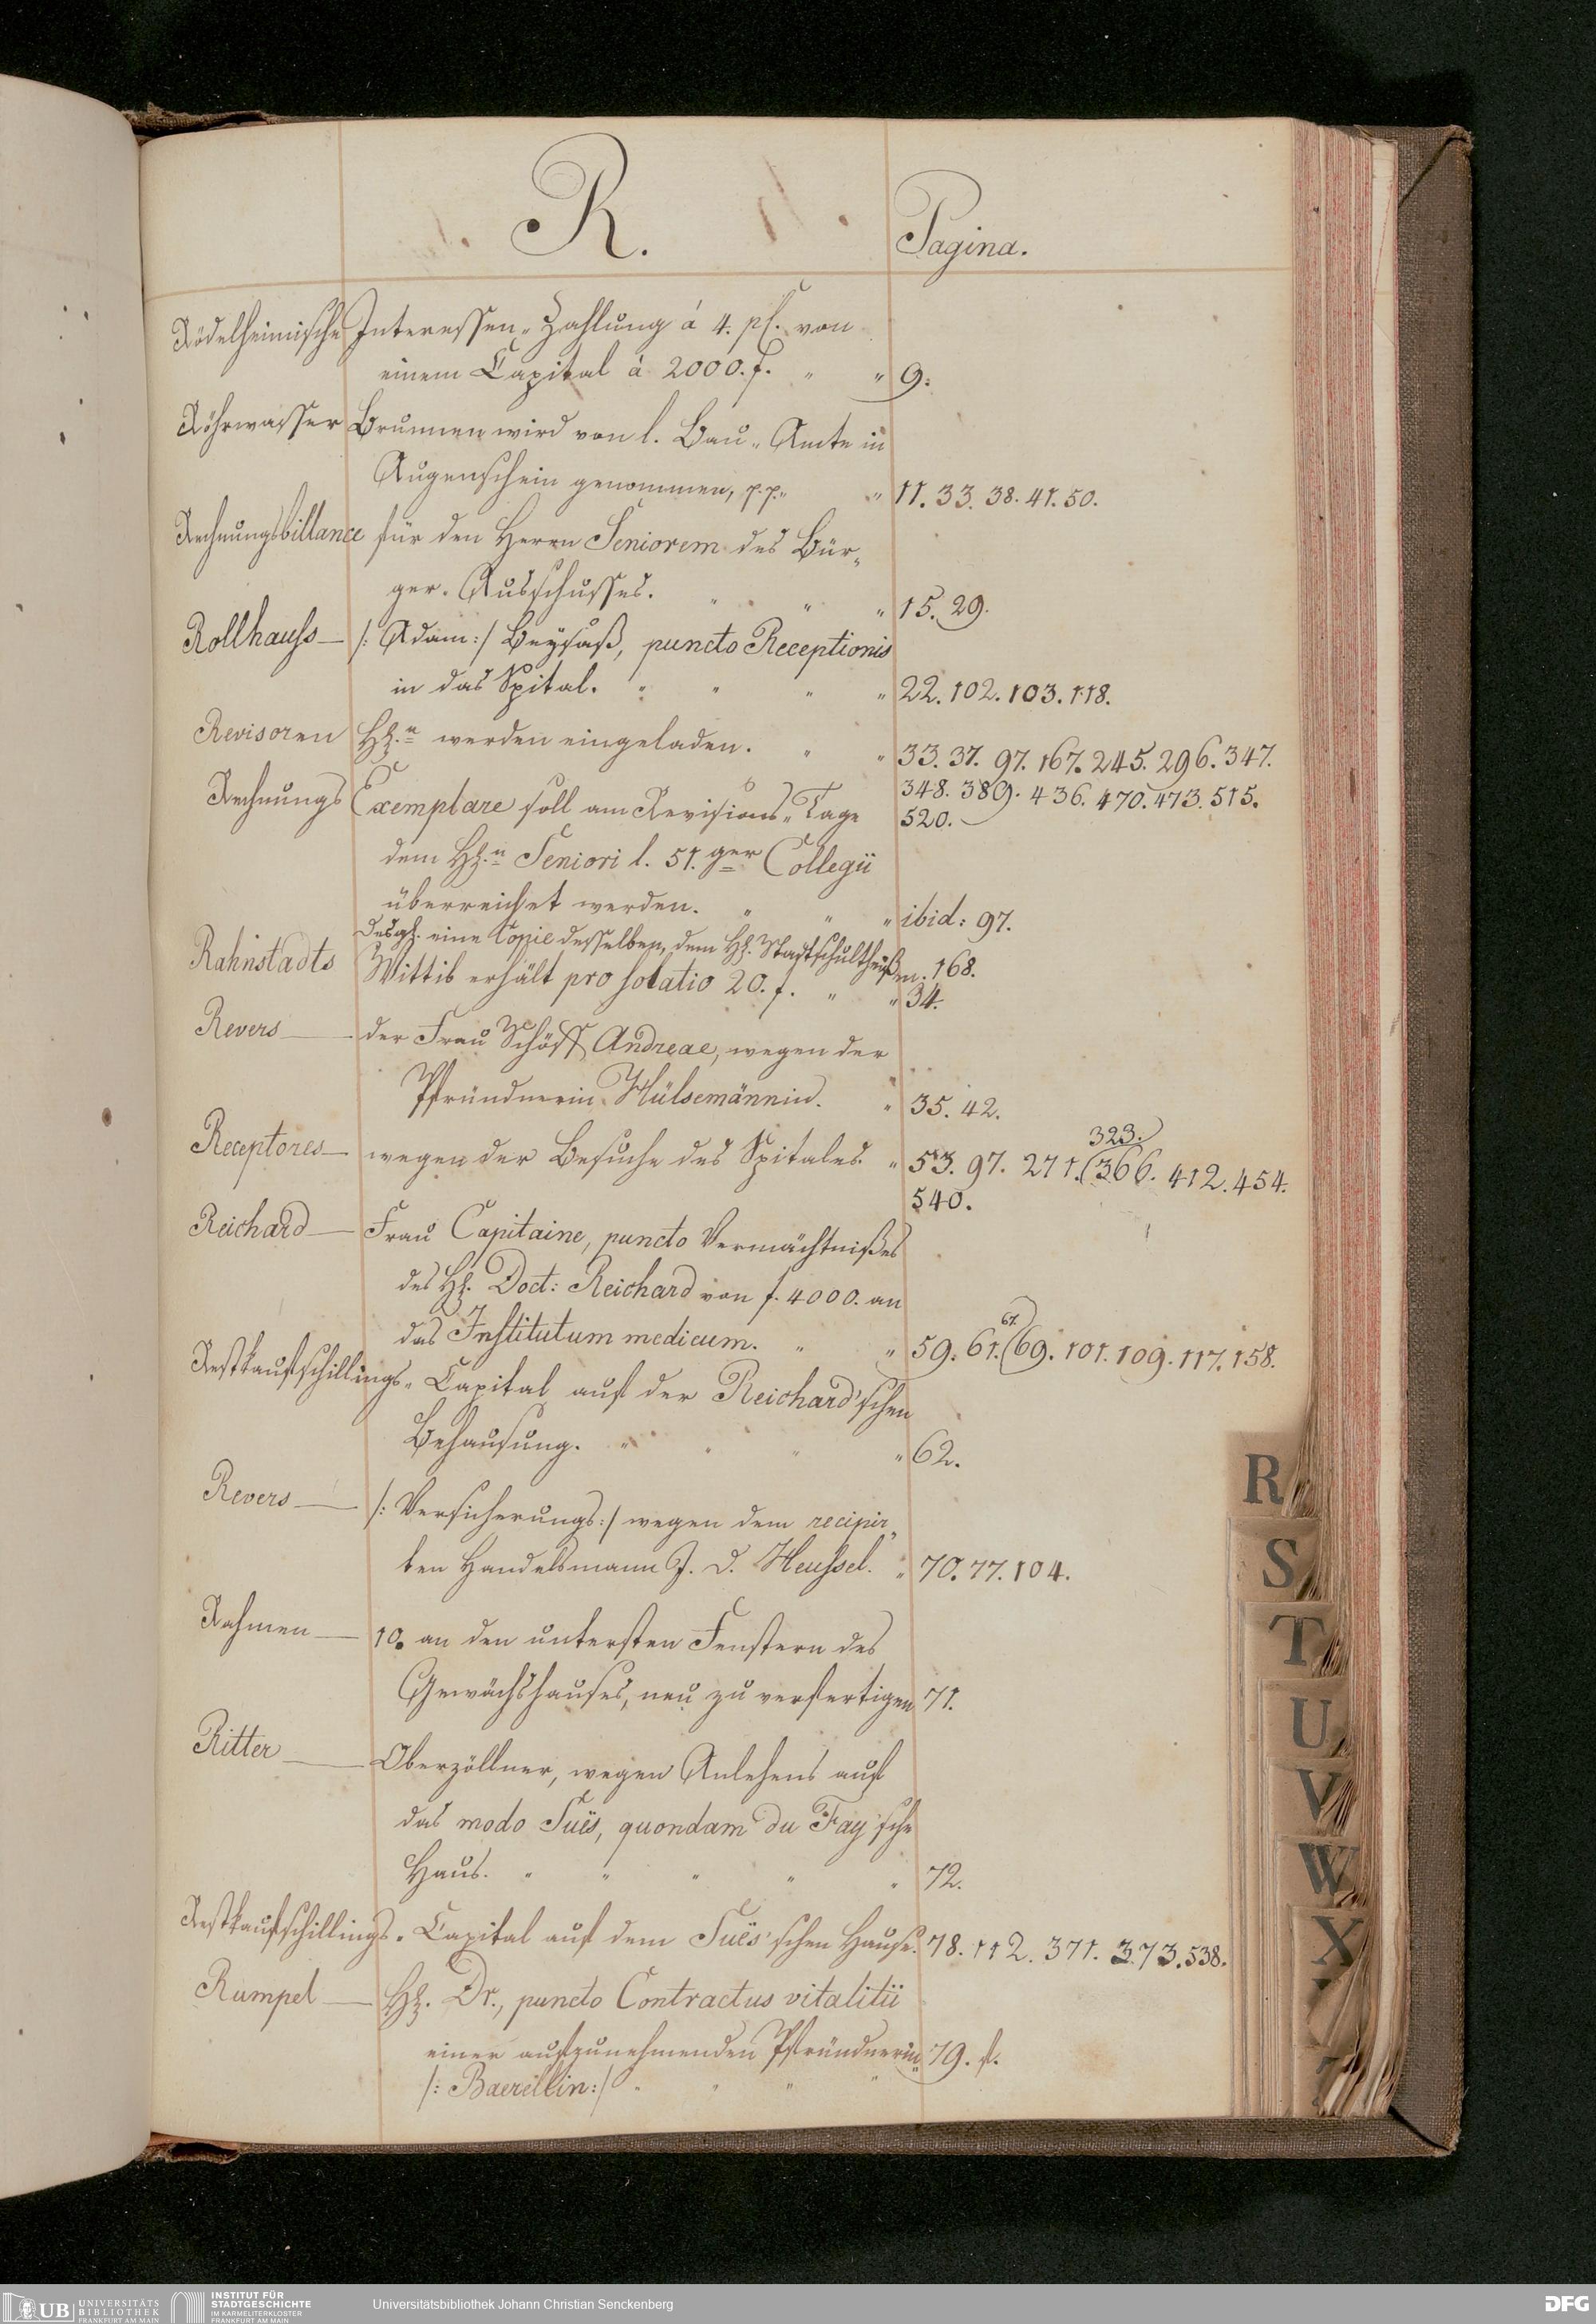 R.
Pagina.
Rödelheimische Interessen-Zahlung á 4. pC. von
einem Capital à 2000. f. " " 9.
Röhrwasser Brunnen wird von l. Bau-Amte in
Augenschein genommen, p.p. " 11. 33. 38. 41. 50.
Rechnungsbillance für den Herrn Seniorem des Bür-
ger-Ausschusses. " " " 15. 29.
Rollhauss— /: Adam :/ Beysaß, puncto Receptionis
in das Spital. " " " " 22. 102. 103. 118.
Revisoren HH.n werden eingeladen. " " 33. 37. 97. 167. 245. 296. 347.
348. 389. 436. 470. 473. 515.
520.
Rechnungs Exemplare soll am Revisions-Tage
dem HH.n Seniori l. 51.ger Collegii
überreichet werden. " " " ibid: 97.
Desgl. eine Copie desselben, dem HH. Stadtschultheißen. 168.
Rahnstadts Wittib erhält pro solatio 20. f. " " 34.
Revers— der Frau Schöff Andreae, wegen der
Pfründnerin Hülsemännin. " 35. 42.
Receptores— wegen der Besuche des Spitales. " 53. 97. 271. (366. 412. 454.
323.
540.
Reichard— Frau Capitaine, puncto Vermächtnißes
des HH. Doct: Reichard von f. 4000. an
das Institutum medicum. " " 59. 61. (69. 101. 109. 117. 158.
67.
Restkaufschillings-Capital auf der Reichard'schen
Behausung. " " " " 62.
Revers— /: Versicherungs :/ wegen dem recipir-
ten Handelsmann J. D. Heussel. " 70. 77. 104.
Rahmen— 10. an den untersten Fenstern des
Gewächshauses, neu zu verfertigen 71.
Ritter— Oberzöllner, wegen Anlehens auf
das modo Süës, quondam du Fay'sche
Haus. " " " " " 72.
Restkaufschillings-Capital auf dem Süës'schen Hause. 78. 112. 371. 373. 538.
Rumpel— HH. Dr., puncto Contractus vitalitii
einer aufzunehmenden Pfründnerin 79. f.
/: Baerellin :/ " " " "
R
S
T
U
V
W
X
UB UNIVERSITÄTS
BIBLIOTHEK
FRANKFURT AM MAIN
INSTITUT FÜR
STADTGESCHICHTE
IM KARMELITERKLOSTER
FRANKFURT AM MAIN
Universitätsbibliothek Johann Christian Senckenberg
DFG